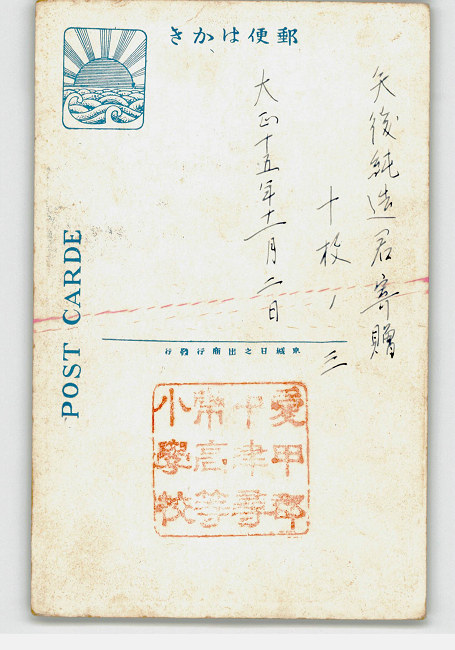 郵便はかき
矢後純造君寄贈
十枚ノ三
大正十五年十一月二日
POST CARDE
京城日之出商行發行
愛甲郡
中津尋
常高等
小學校